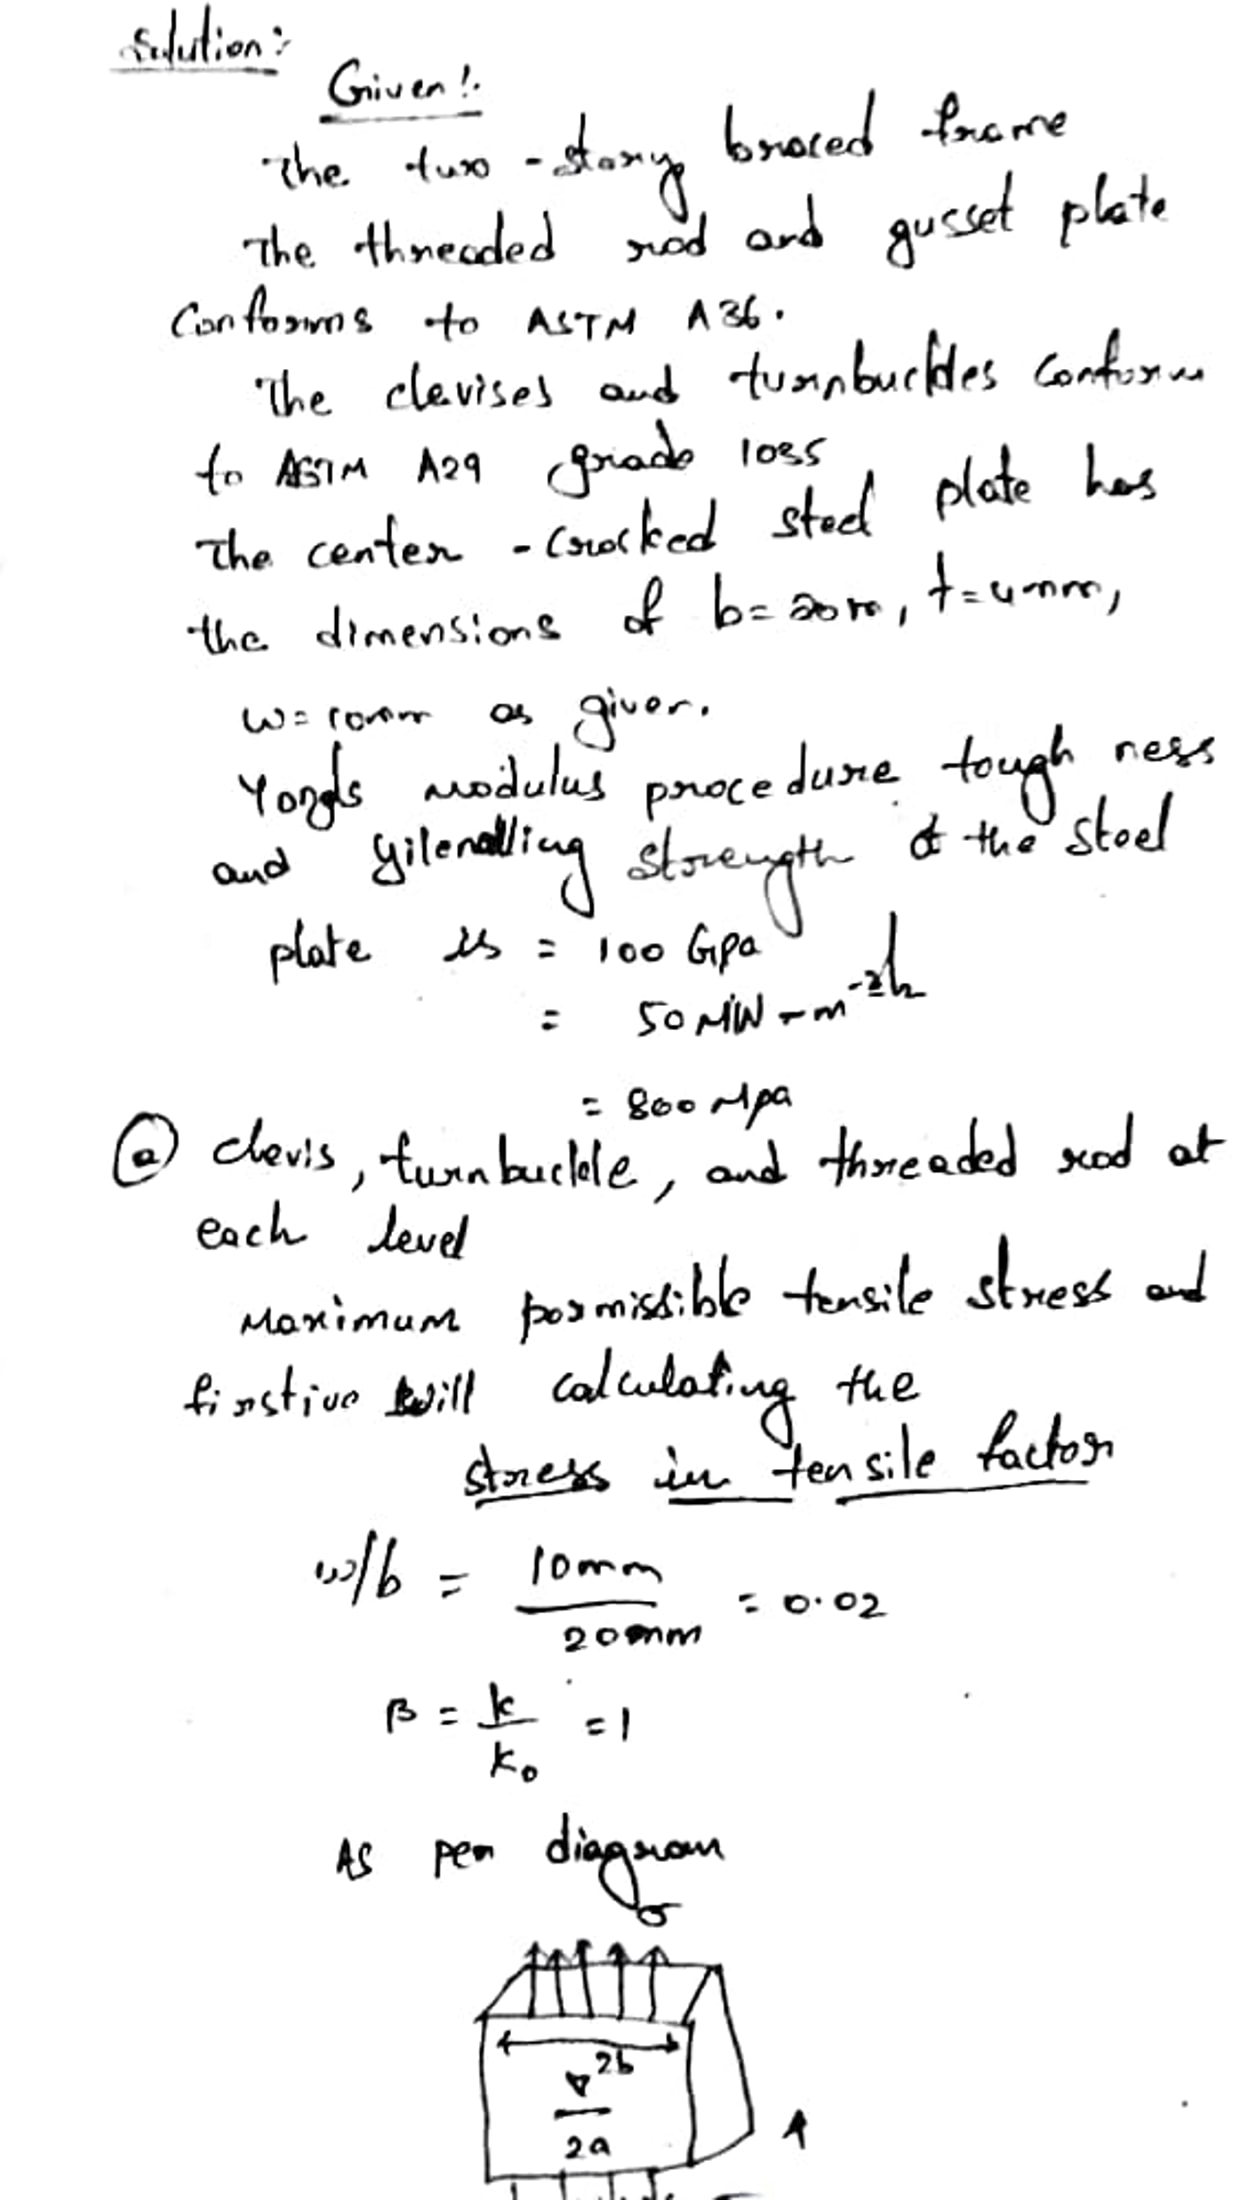 Solution:
Given:
The two - story braced frame
The threaded rod and gusset plate
Conforms to ASTM A36.
The clevises and turnbuckles conform
to ASTM A29 grade 1035
The center - cracked steel plate has
the dimensions of b= 20m, t=4mm,
w=10mm as given.
modulus procedure tough ness
and strength of the steel
plate is = 100 Gpa
= 50 MN - m
= 800 Mpa
(a) clevis, turnbuckle, and threaded rod at
each level
Maximum permissible tensile stress and
will calculating the
stress in tensile factor
w/b = 10mm / 20mm = 0.02
β = k / k₀ = 1
As per diagram
σ
2b
2a